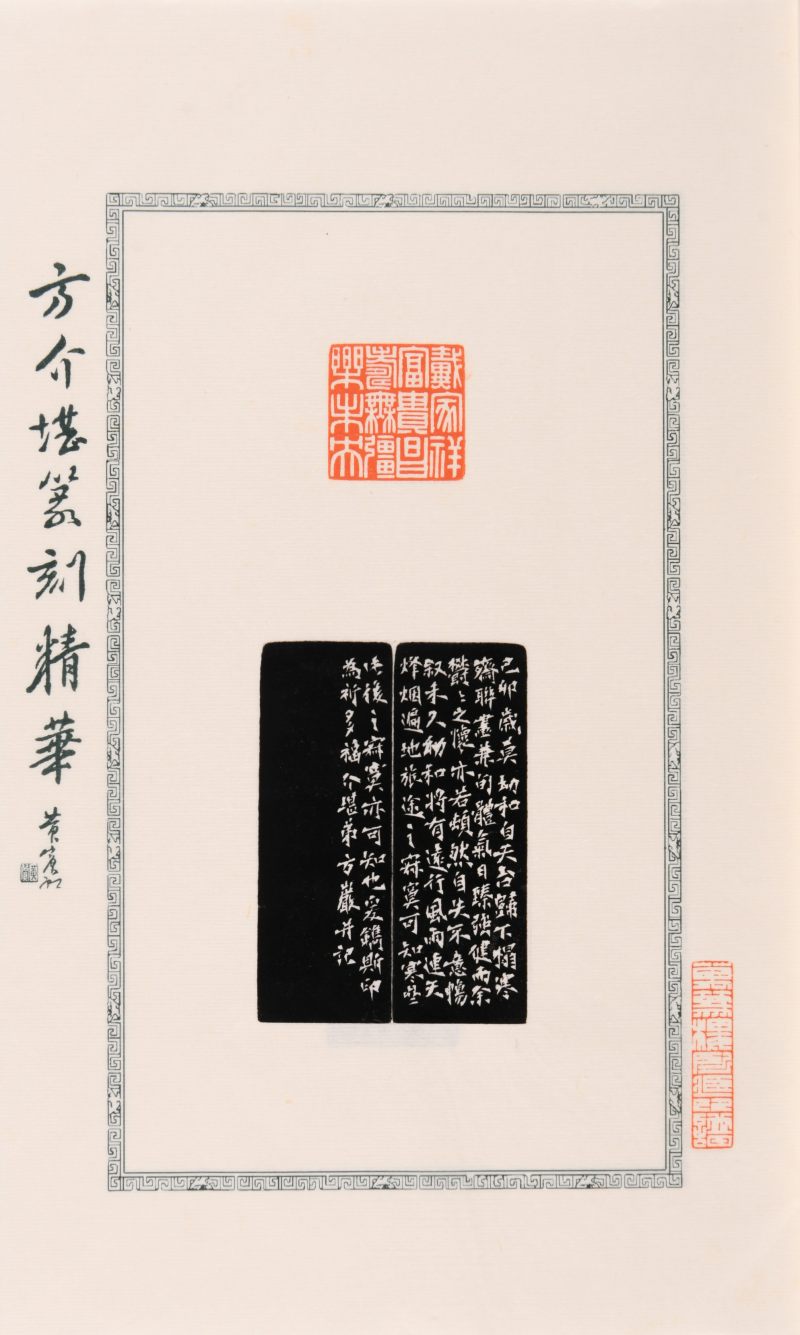 方介堪篆刻精華
黃賓虹
戴家祥
富貴昌
壽無彊
樂未央
己卯歲莫幼和自天台歸下榻寒
齋聯兼旬體氣日臻強健而余
鬱〻之懷亦若頓然自失不意暢
叙未久幼和將有遠行風雨連天
烽烟遍地旅途之寂寞可知寒
後之寂寞亦可知也爰鐫斯印
為祈多福介堪弟方巖并記